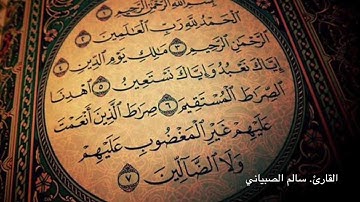 بِسْمِ اللَّهِ الرَّحْمَٰنِ الرَّحِيمِ ١
الْحَمْدُ لِلَّهِ رَبِّ الْعَالَمِينَ ٢
الرَّحْمَٰنِ الرَّحِيمِ ٣ مَالِكِ يَوْمِ الدِّينِ ٤
إِيَّاكَ نَعْبُدُ وَإِيَّاكَ نَسْتَعِينُ ٥ اهْدِنَا
الصِّرَاطَ الْمُسْتَقِيمَ ٦ صِرَاطَ الَّذِينَ أَنْعَمْتَ
عَلَيْهِمْ غَيْرِ الْمَغْضُوبِ عَلَيْهِمْ
وَلَا الضَّالِّينَ ٧
القارئ. سالم الصبياني